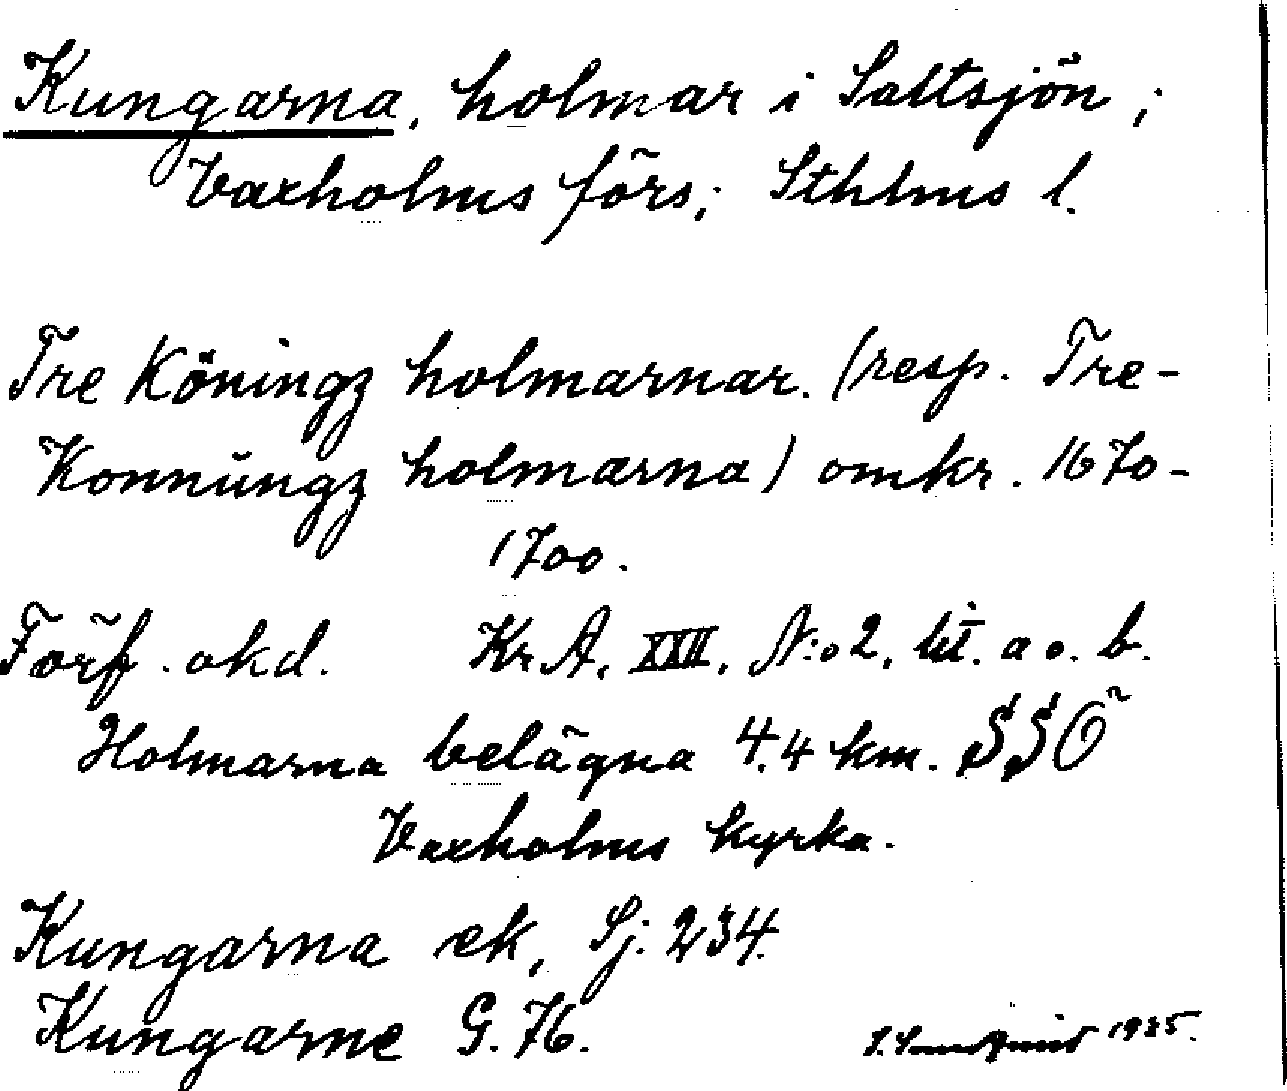 Kungarna, holmar i Saltsjön;
Vaxholms förs; Sthlms l.
Tre Köningz holmarnar. (resp. Tre-
Konnŭngz holmarna) omkr. 1670-
1700.
Förf. okd. Kr A, XXII, N:o 2, lit. a o. b.
Holmarna belägna 4.4 km. SSÖ
Vaxholms kyrka.
Kungarna ek, Sj. 234.
Kungarne G. 76.
1935.